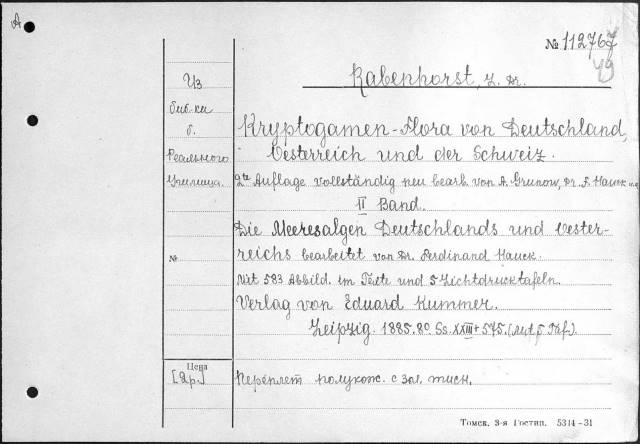 A
№ 112767
49
Rabenhorst, L. Dr.
Из
биб-ки
б.
Реального
Училища.
Kryptogamen-Flora von Deutschland,
Oesterreich und der Schweiz.
2te Auflage vollständig neu bearb von A. Grunow, Dr. F. Hauck u.a
II Band.
Die Meeresalgen Deutschlands und Oester-
reichs bearbeitet von Dr. Ferdinand Hauck.
№
Mit 583 Abbild. im Texte und 5 Lichtdrucktafeln.
Verlag von Eduard Kummer.
Leipzig. 1885. 8º. Ss. XXIII + 575. (mit 5 Taf.).
Цена
[2р.]
Переплет полукож. с зол. тисн.
Томск. 3-я Гостип. 5314-31